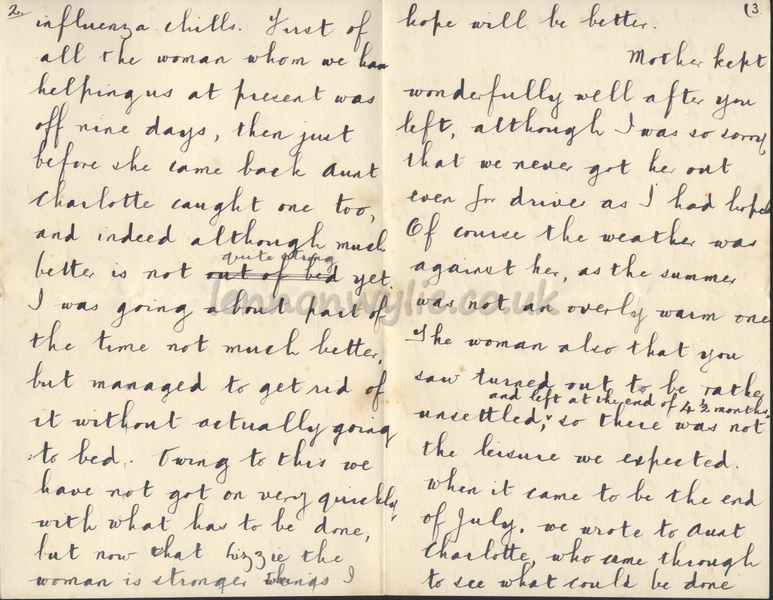 2.
influenza chills. First of
all the woman whom we have
helping us at present was
off nine days, then just
before she came back Aunt
Charlotte caught one too,
and indeed although much
quite strong
better is not out of bed yet.
I was going about part of
the time not much better,
but managed to get rid of
it without actually going
to bed. Owing to this we
have not got on very quickly
with what has to be done,
but now that Lizzie the
woman is stronger things I
3
hope will be better.
Mother kept
wonderfully well after you
left, although I was so sorry
that we never got her out
even for drives as I had hoped
Of course the weather was
against her, as the summer
was not an overly warm one
The woman also that you
saw turned out to be rather
and left at the end of 4½ months,
unsettled, so there was not
the leisure we expected.
When it came to be the end
of July, we wrote to Aunt
Charlotte, who came through
to see what could be done
lennonwylie.co.uk